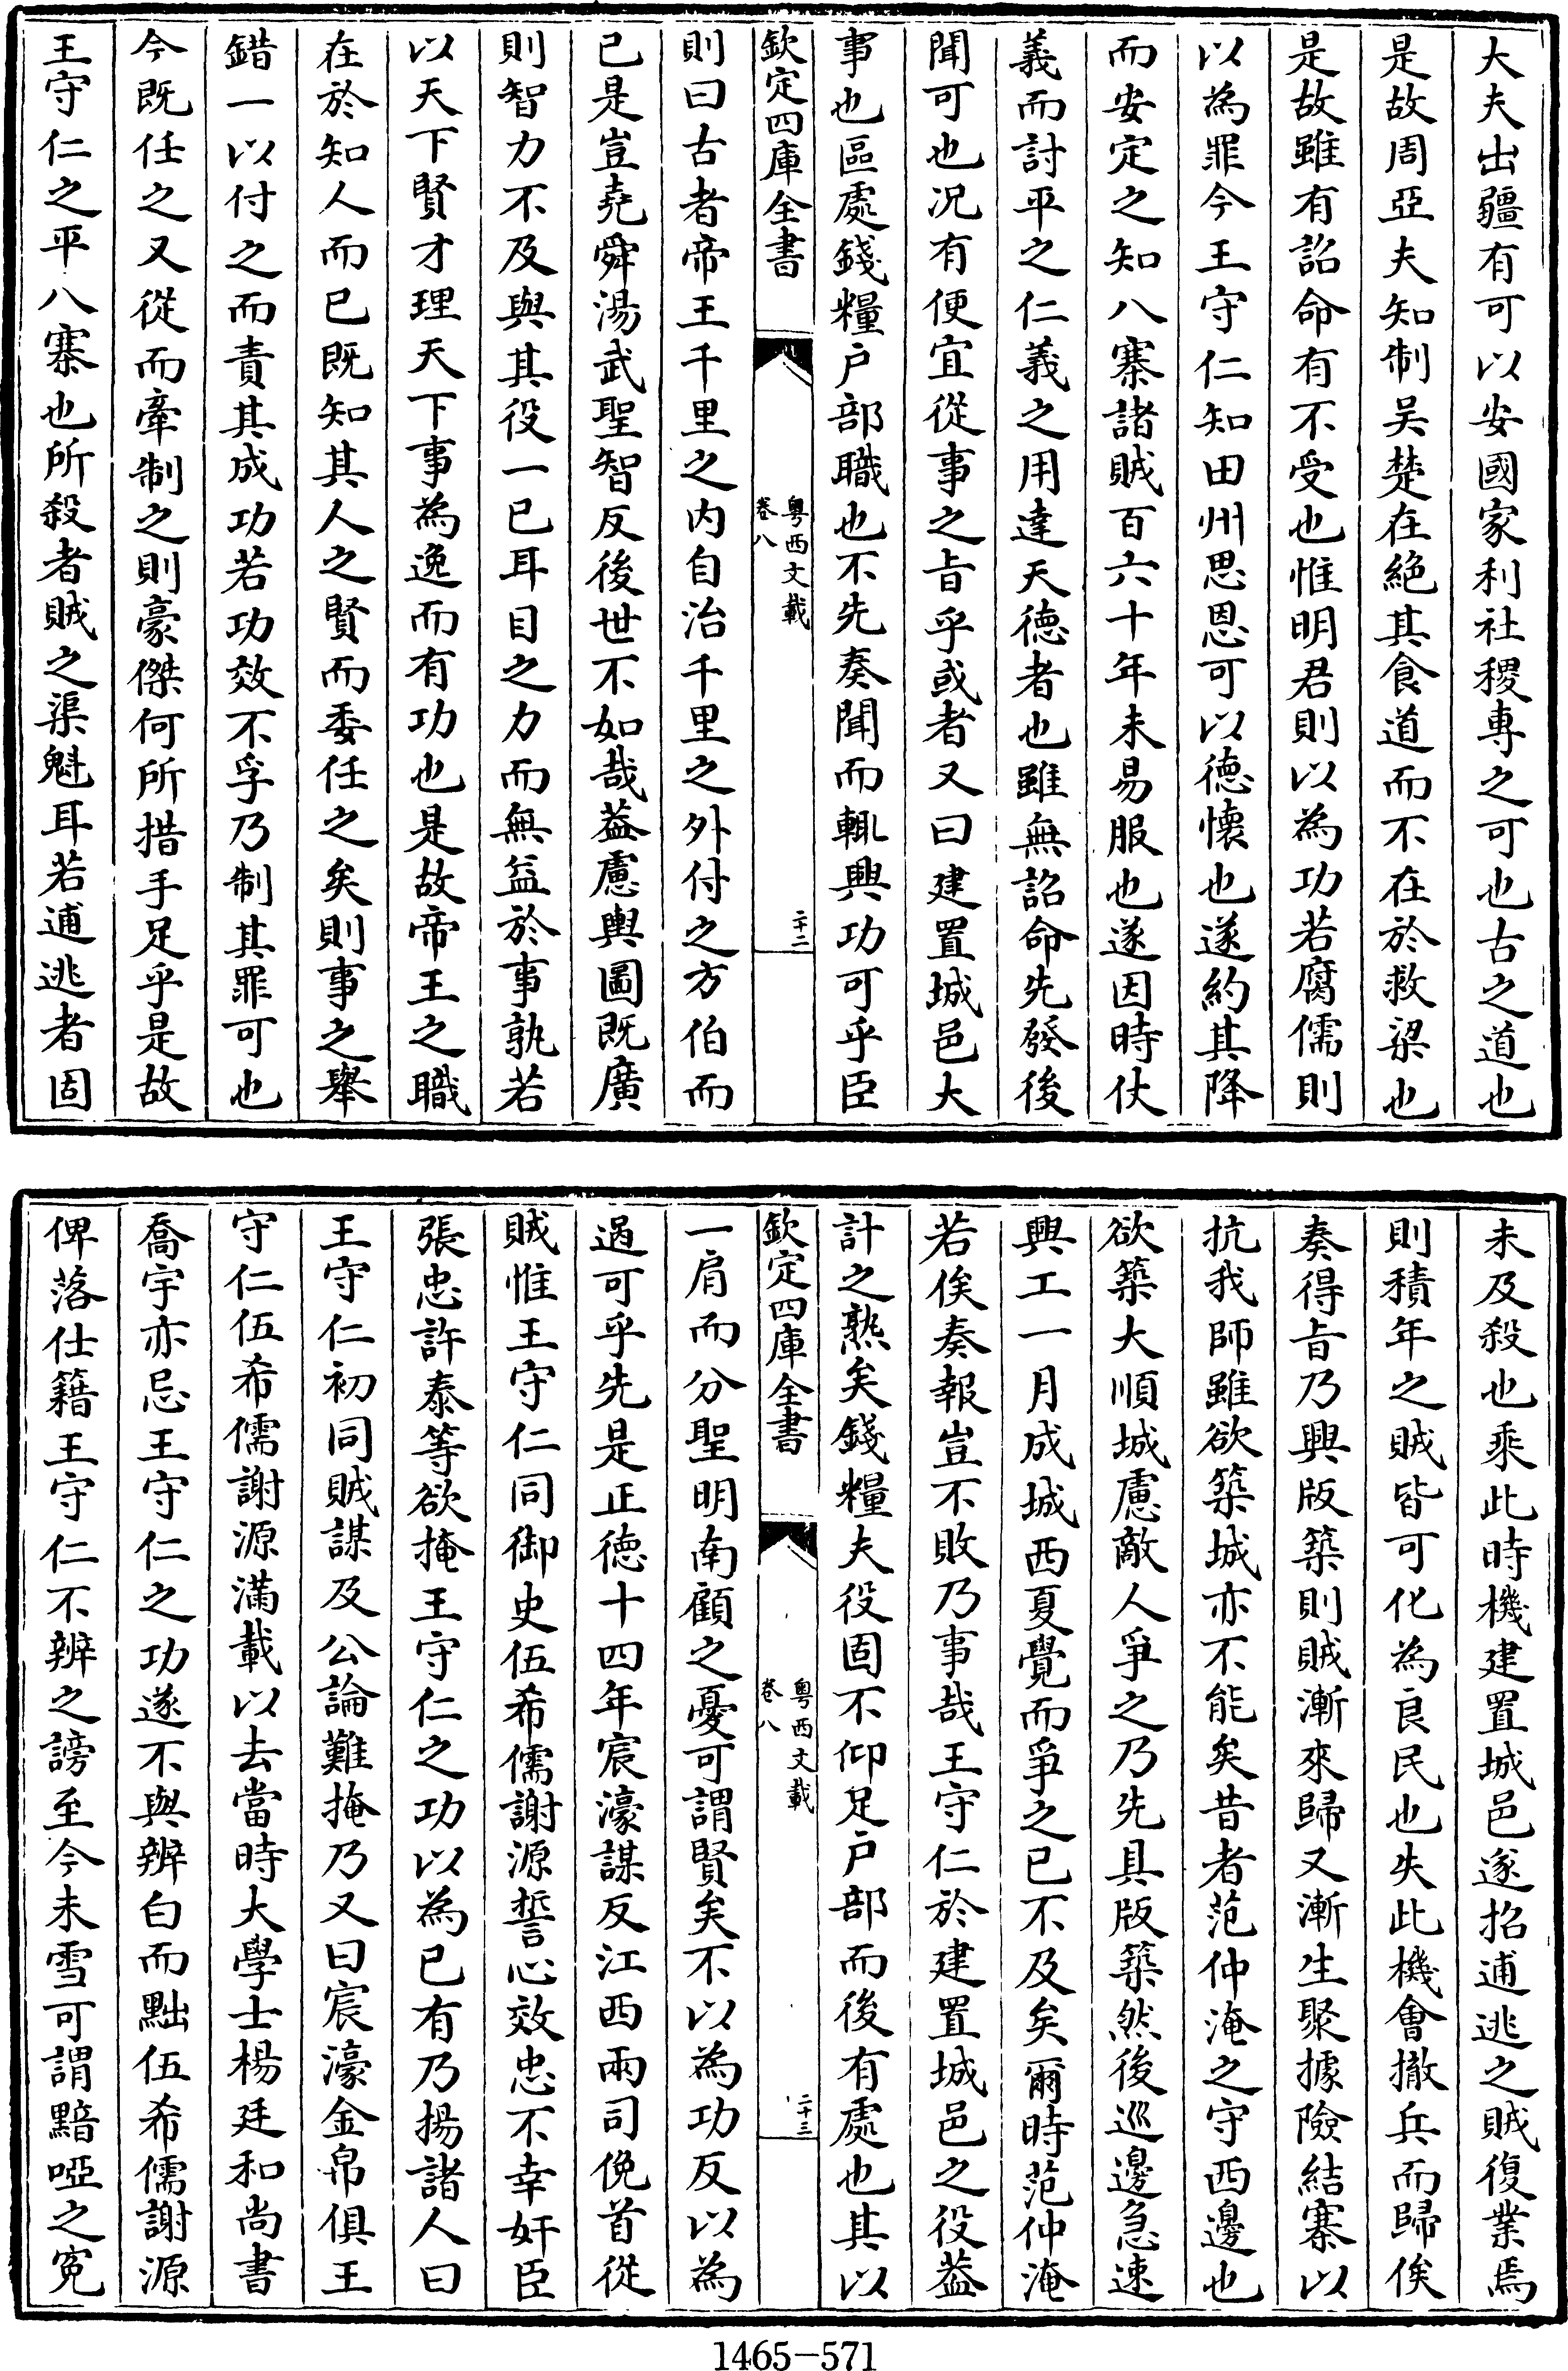 大夫出疆有可以安國家利社稷專之可也古之道也
是故周亞夫知制吴楚在絕其食道而不在於救梁也
是故雖有詔命有不受也惟明君則以為功若腐儒則
以為罪今王守仁知田州思恩可以德懷也遂約其降
而安定之知八寨諸賊百六十年未易服也遂因時仗
義而討平之仁義之用達天德者也雖無詔命先發後
聞可也况有便宜從事之㫖乎或者又曰建置城邑大
事也區處錢糧户部職也不先奏聞而輒興功可乎臣
欽定四庫全書
粤西文載
卷八
二十二
則曰古者帝王千里之内自治千里之外付之方伯而
已是豈堯舜湯武聖智反後世不如哉葢慮輿圖既廣
則智力不及與其役一已耳目之力而無益於事孰若
以天下賢才理天下事為逸而有功也是故帝王之職
在於知人而已既知其人之賢而委任之矣則事之舉
錯一以付之而責其成功若功效不孚乃制其罪可也
今既任之又從而牽制之則豪傑何所措手足乎是故
王守仁之平八寨也所殺者賊之渠魁耳若逋逃者固
未及殺也乘此時機建置城邑遂招逋逃之賊復業焉
則積年之賊皆可化為良民也失此機會撤兵而歸俟
奏得㫖乃興版築則賊漸來歸又漸生聚據險結寨以
抗我師雖欲築城亦不能矣昔者范仲淹之守西邊也
欲築大順城慮敵人爭之乃先具版築然後巡邊急速
興工一月成城西夏覺而爭之已不及矣爾時范仲淹
若俟奏報豈不敗乃事哉王守仁於建置城邑之役葢
計之熟矣錢糧夫役固不仰足户部而後有處也其以
欽定四庫全書
粤西文載
卷八
二十三
一肩而分聖明南顧之憂可謂賢矣不以為功反以為
過可乎先是正德十四年宸濠謀反江西兩司俛首從
賊惟王守仁同御史伍希儒謝源誓心效忠不幸奸臣
張忠許泰等欲掩王守仁之功以為已有乃揚諸人曰
王守仁初同賊謀及公論難掩乃又曰宸濠金帛俱王
守仁伍希儒謝源滿載以去當時大學士楊廷和尚書
喬宇亦忌王守仁之功遂不與辨白而黜伍希儒謝源
俾落仕籍王守仁不辨之謗至今未雪可謂黯啞之寃
1465-571